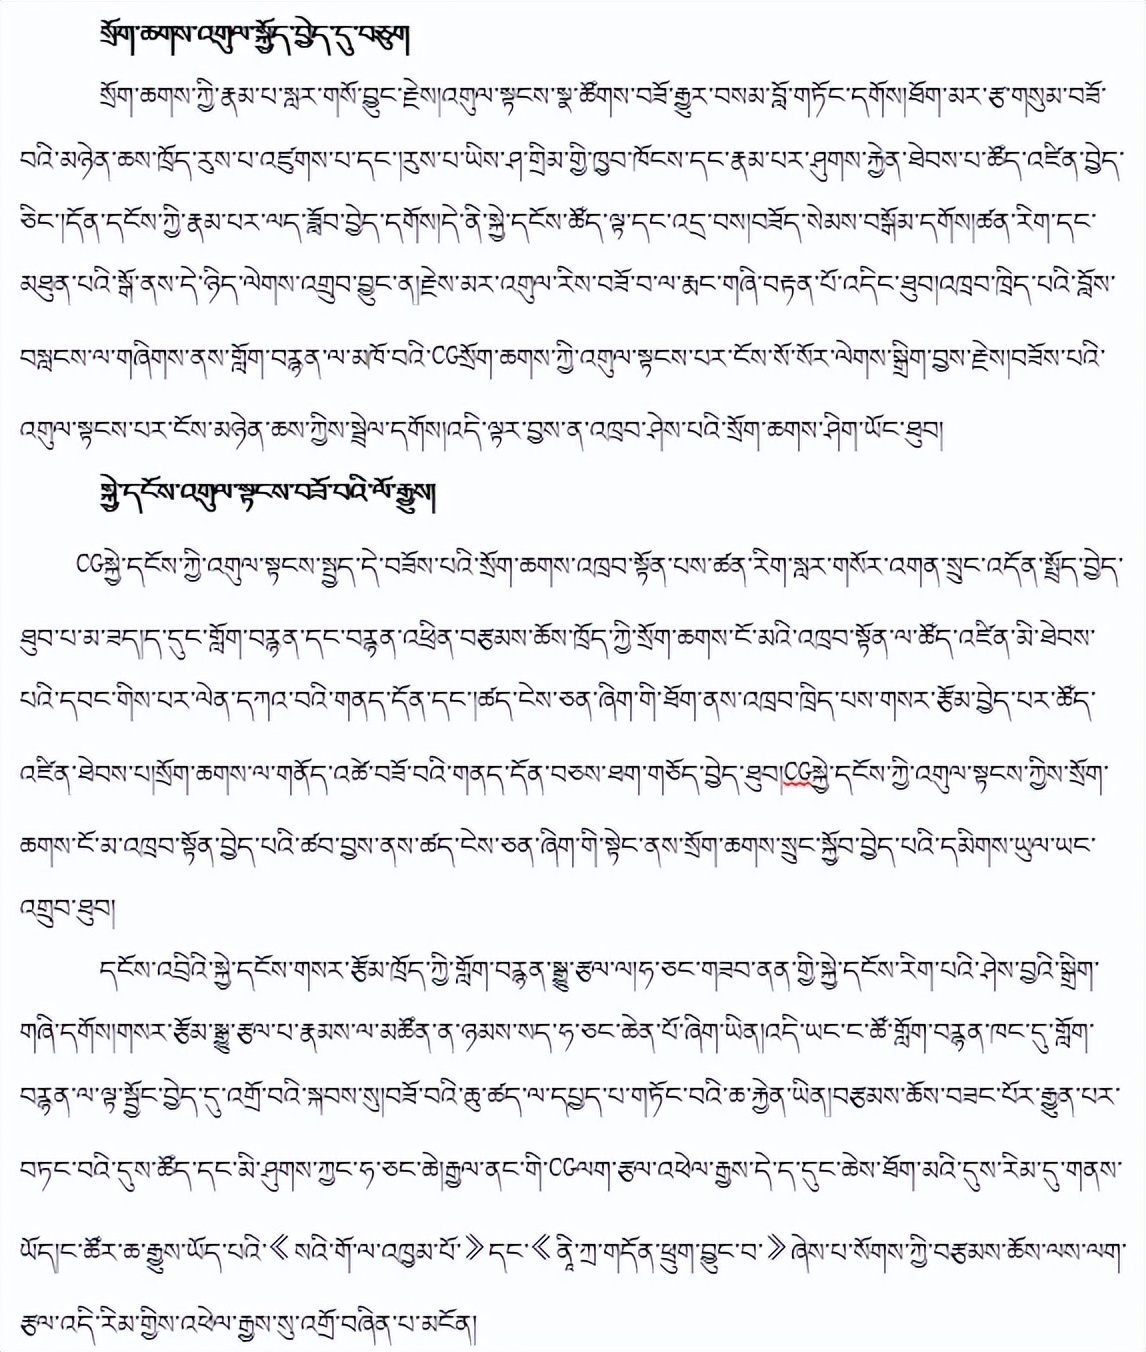 སྲོག་ཆགས་འགུལ་སྐྱོད་བྱེད་དུ་བཅུག
སྲོག་ཆགས་ཀྱི་རྣམ་པ་སླར་གསོ་བྱུང་རྗེས།འགུལ་སྟངས་སྣ་ཚོགས་བཟོ་རྒྱུར་བསམ་བློ་གཏོང་དགོས།ཐོག་མར་རྩ་གསུམ་བཟོ་
བའི་མཉེན་ཆས་ཁྲོད་རུས་པ་འཛུགས་པ་དང་།རུས་པ་ཡིས་ཤ་གྲིམ་གྱི་ཁྱབ་ཁོངས་དང་རྣམ་པར་ཤུགས་རྐྱེན་ཐེབས་པ་ཚོད་འཛིན་བྱེད་
ཅིང་།དོན་དངོས་ཀྱི་རྣམ་པར་ལད་ཟློབ་བྱེད་དགོས།དེ་ནི་སྐྱེ་དངོས་ཚོད་ལྟ་དང་འདྲ་བས།བཟོད་སེམས་བསྒོམ་དགོས།ཚན་རིག་དང་
མཐུན་པའི་སྒོ་ནས་དེ་ཉིད་ལེགས་འགྲུབ་བྱུང་ན།རྗེས་མར་འགུལ་རིས་བཟོ་བ་ལ་རྨང་གཞི་བརྟན་པོ་འདིང་ཐུབ།འཁྲབ་ཁྲིད་པའི་བློས་
བསླངས་ལ་གཞིགས་ནས་གློག་བརྙན་ལ་མཁོ་བའི་CGསྲོག་ཆགས་ཀྱི་འགུལ་སྟངས་པར་ངོས་སོ་སོར་ལེགས་སྒྲིག་བྱས་རྗེས།བཟོས་པའི་
འགུལ་སྟངས་པར་ངོས་མཉེན་ཆས་ཀྱིས་སྦྲེལ་དགོས།འདི་ལྟར་བྱས་ན་འཁྲབ་ཤེས་པའི་སྲོག་ཆགས་ཤིག་ཡོང་ཐུབ།
སྐྱེ་དངོས་འགུལ་སྟངས་བཟོ་བའི་ལོ་རྒྱུས།
CGསྐྱེ་དངོས་ཀྱི་འགུལ་སྟངས་སྤྱད་དེ་བཟོས་པའི་སྲོག་ཆགས་འཁྲབ་སྟོན་པས་ཚན་རིག་སླར་གསོར་འགན་སྲུང་འདོན་སྤྲོད་བྱེད་
ཐུབ་པ་མ་ཟད།ད་དུང་གློག་བརྙན་དང་བརྙན་འཕྲིན་བརྩམས་ཆོས་ཁྲོད་ཀྱི་སྲོག་ཆགས་ངོ་མའི་འཁྲབ་སྟོན་ལ་ཚོད་འཛིན་མི་ཐེབས་
པའི་དབང་གིས་པར་ལེན་དཀའ་བའི་གནད་དོན་དང་།ཚད་ངེས་ཅན་ཞིག་གི་ཐོག་ནས་འཁྲབ་ཁྲིད་པས་གསར་རྩོམ་བྱེད་པར་ཚོད་
འཛིན་ཐེབས་པ།སྲོག་ཆགས་ལ་གནོད་འཚེ་བཟོ་བའི་གནད་དོན་བཅས་ཐག་གཅོད་བྱེད་ཐུབ།CGསྐྱེ་དངོས་ཀྱི་འགུལ་སྟངས་ཀྱིས་སྲོག་
ཆགས་ངོ་མ་འཁྲབ་སྟོན་བྱེད་པའི་ཚབ་བྱས་ནས་ཚད་ངེས་ཅན་ཞིག་གི་སྟེང་ནས་སྲོག་ཆགས་སྲུང་སྐྱོབ་བྱེད་པའི་དམིགས་ཡུལ་ཡང་
འགྲུབ་ཐུབ།
དངོས་འབྲིའི་སྐྱེ་དངོས་གསར་རྩོམ་ཁྲོད་ཀྱི་གློག་བརྙན་སྒྱུ་རྩལ་ལ།ཧ་ཅང་གཟབ་ནན་གྱི་སྐྱེ་དངོས་རིག་པའི་ཤེས་བྱའི་སྒྲིག་
གཞི་དགོས།གསར་རྩོམ་སྒྱུ་རྩལ་པ་རྣམས་ལ་མཚོན་ན་ཉམས་སད་ཧ་ཅང་ཆེན་པོ་ཞིག་ཡིན།འདི་ཡང་ང་ཚོ་གློག་བརྙན་ཁང་དུ་གློག་
བརྙན་ལ་ལྟ་སྤྱོང་བྱེད་དུ་འགྲོ་བའི་སྐབས་སུ།བཟོ་བའི་ཆུ་ཚད་ལ་དཔྱད་པ་གཏོང་བའི་ཆ་རྐྱེན་ཡིན།བརྩམས་ཆོས་བཟང་པོར་རྒྱུན་པར་
བཏང་བའི་དུས་ཚོད་དང་མི་ཤུགས་ཀྱང་ཧ་ཅང་ཆེ།རྒྱལ་ནང་གི་CGལག་རྩལ་འཕེལ་རྒྱས་དེ་ད་དུང་ཆེས་ཐོག་མའི་དུས་རིམ་དུ་གནས་
ཡོད།ང་ཚོར་ཆ་རྒྱུས་ཡོད་པའི་《 སའི་གོ་ལ་འཁྱམ་པོ་ 》དང་《 ནཱི་ཀྲ་གདོན་ཕྲུག་བྱུང་བ་ 》ཞེས་པ་སོགས་ཀྱི་བརྩམས་ཆོས་ལས་ལག་
རྩལ་འདི་རིམ་གྱིས་འཕེལ་རྒྱས་སུ་འགྲོ་བཞིན་པ་མངོན།